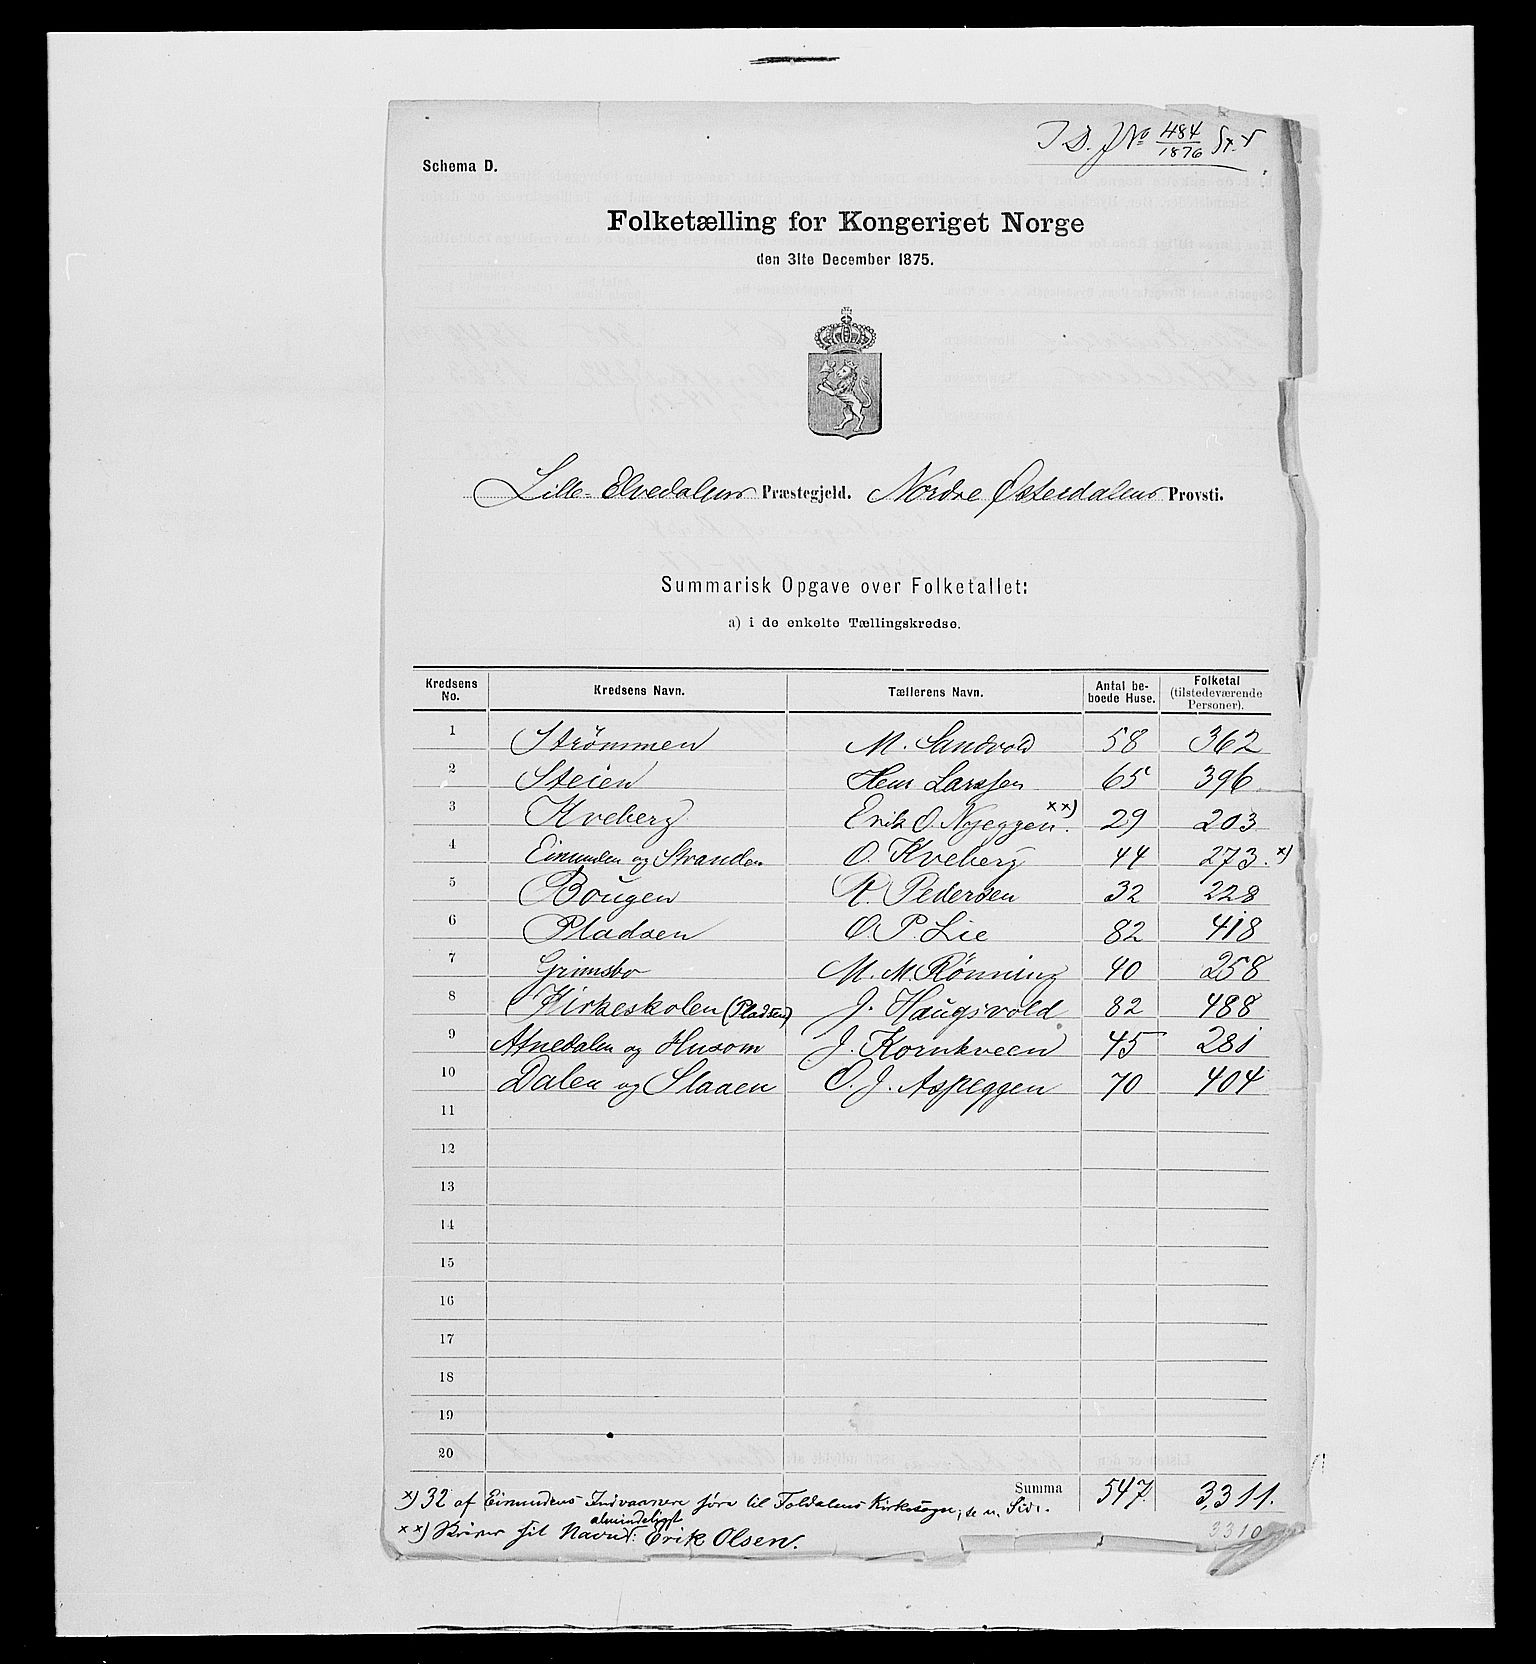 I D. J No 484/1876
Schema D.
Folketælling for Kongeriget Norge
den 31te December 1875.
Lille-Elvedalens Præstegjeld. Nordre Østerdalens Provsti.
Summarisk Opgave over Folketallet:
a) i de enkelte Tællingskredse.
Kredsens No. Kredsens Navn. Tællerens Navn. Antal beboede Huse. Folketal (tilstedeværende Personer).
1 Strömmen M. Sandvold 58 362
2 Steien Hem Larssen 65 396
3 Kveberg Erik O. Nyeggen. xx) 29 203
4 Eimunden og Stranden O. Kveberg 44 273. x)
5 Bougen P. Pedersen 32 228
6 Pladsen O. P. Lie 82 418
7 Grimsbo M. M. Rönning 40 258
8 Kirkeskolen (Pladsen) J. Haugsvold 82 488
9 Atnedalen og Husom J. Kornkveen 45 281
10 Dalen og Slaaen O. J. Aspeggen 70 404
11
12
13
14
15
16
17
18
19
20
Summa 547. 3,311.
3310
x) 32 af Eimundens Indvaanere höre til Foldalens Kirkesogn, se n. Side.
xx) Skriver sit Navn almindeligst: Erik Olsen.